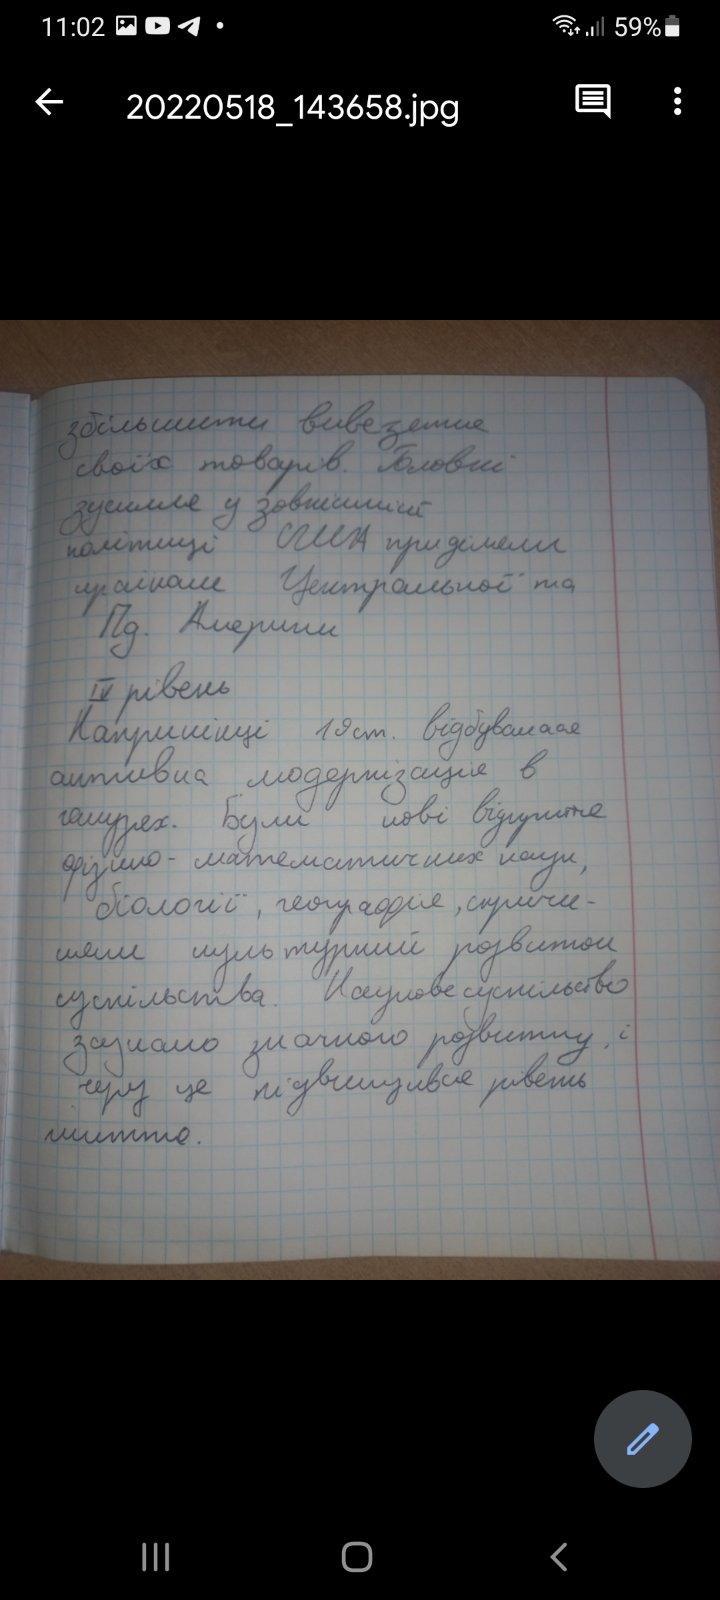 11:02
59%
20220518_143658.jpg
збільшити вивезення
своїх товарів. Головні
зусилля у зовнішній
політиці США приділяли
країнам Центральної та
Пд. Америки
IV рівень
Наприкінці 19 ст. відбувалася
активна модернізація в
галузях. Були нові відкриття
фізико-математичних наук,
біології, географія, спричи-
няли культурний розвиток
суспільства. Наукове суспільство
зазнало значного розвитку, і
через це підвищився рівень
життя.